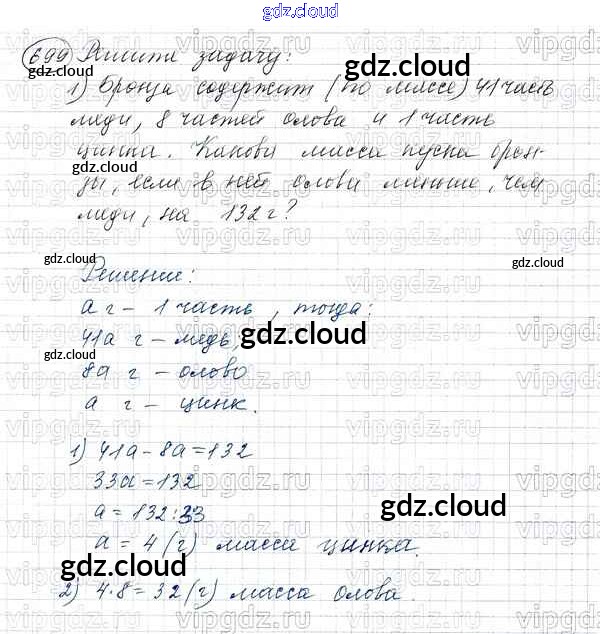 gdz.cloud
gdz.cloud
699 Решите задачу:
gdz.cloud
1) Бронза содержит (по массе) 41 часть
меди, 8 частей олова и 1 часть
цинка. Какова масса куска брон-
gdz.cloud
зы, если в ней олова меньше, чем
меди, на 132 г?
gdz.cloud
gdz.cloud
Решение:
а г – 1 часть, тогда:
41а г – медь,
gdz.cloud
gdz.cloud
8а г – олово
а г – цинк.
1) 41а – 8а = 132
33а = 132
gdz.cloud
а = 132:33
а = 4 (г) масса цинка.
gdz.cloud
2) 4·8 = 32 (г) масса олова.
gdz.cloud
vipgdz.ru